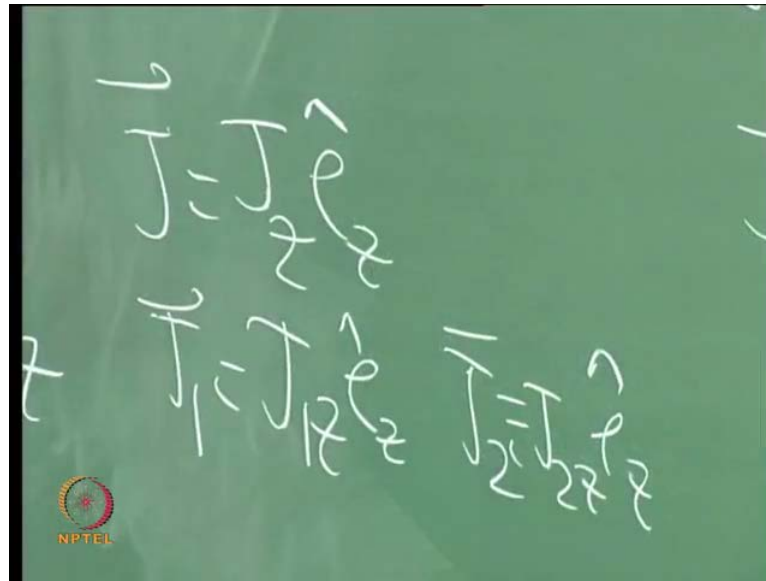 J⃗ = J_z ê_z
z J⃗_1 = J_{1z} ê_z J̅_2 = J_{2z} ê_z
NPTEL